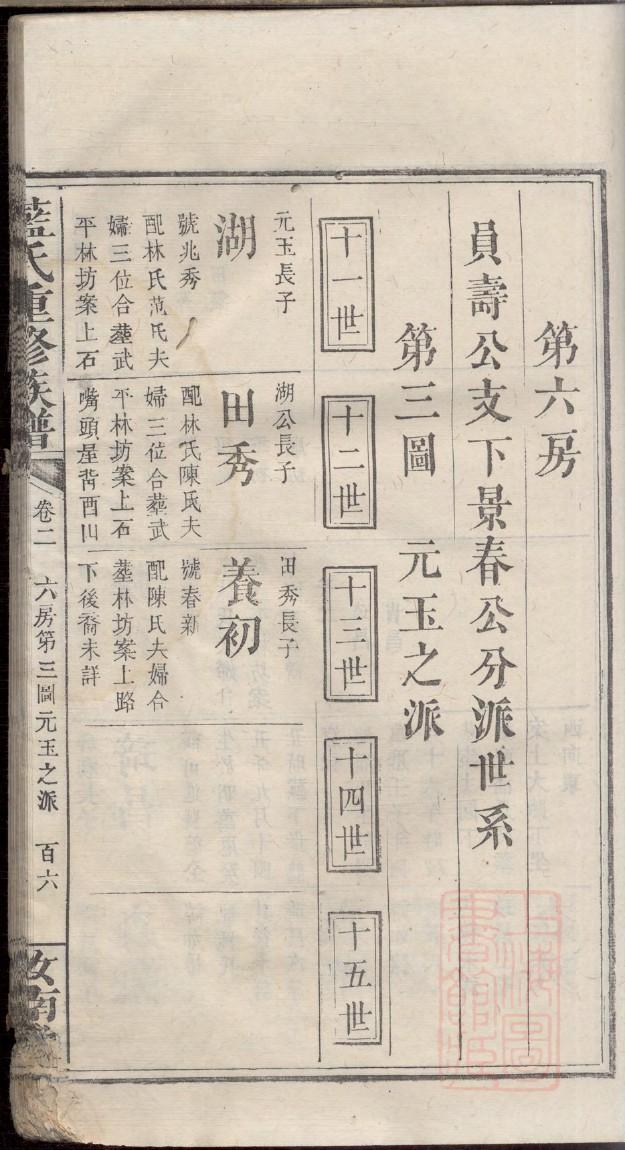 第六房
員壽公支下景春公分派世系
第三圖 元玉之派
十一世
十二世
十三世
十四世
十五世
元玉長子
湖
號兆秀
配林氏范氏夫
婦三位合塟武
平林坊案上石
湖公長子
田秀
配林氏陳氏夫
婦三位合塟武
平林坊案上石
嘴頭屋背酉山
田秀長子
養初
號春新
配陳氏夫婦合
塟林坊案上路
下後裔未詳
藍氏重修族譜
卷二
六房第三圖元玉之派
百六
汝南